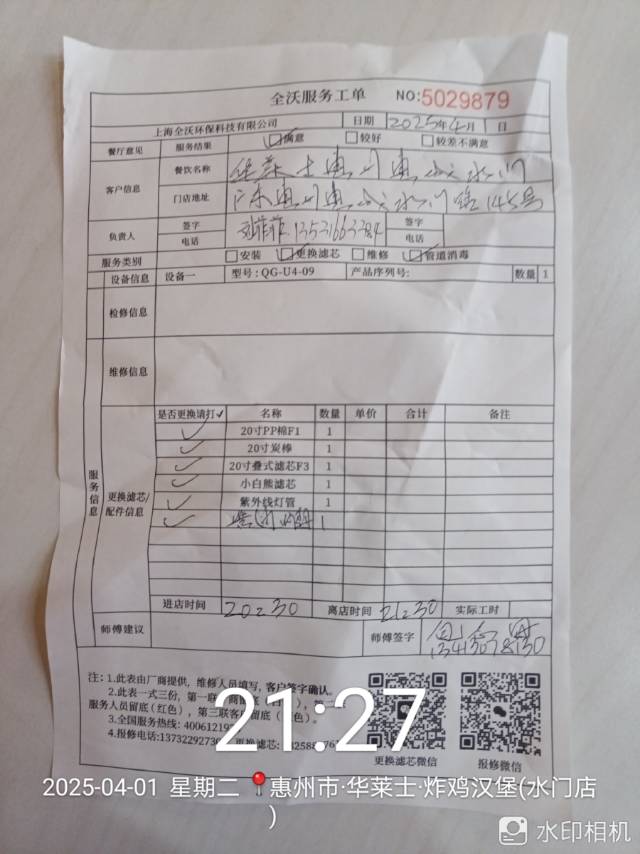 全沃服务工单 NO:5029879
上海全沃环保科技有限公司 日期 2025年4月1日
餐厅意见 服务结果 满意 较好 较差不满意
客户信息 餐饮名称 华莱士惠州惠城水门
门店地址 广东惠州惠城水门路145号
负责人 签字 签字
电话 电话
服务类别 安装 更换滤芯 维修 管道消毒
服务信息
设备信息 设备一 型号:QG-U4-09 产品序列号: 数量 1
检修信息
维修信息
更换滤芯/配件信息
是否更换请打✓ 名称 数量 单价 合计 备注
✓ 20寸PP棉F1 1
✓ 20寸炭棒 1
✓ 20寸叠式滤芯F3 1
✓ 小白熊滤芯 1
✓ 紫外线灯管 1
✓ 1
进店时间 20:30 离店时间 21:30 实际工时
师傅建议 师傅签字
注:1.此表由厂商提供,维修人员填写,客户签字确认。
2.此表一式三份,第一联
服务人员留底(红色),第三联客
3.全国服务热线:
4.报修电话: 更换滤芯:
更换滤芯微信 报修微信
21:27
2025-04-01 星期二 惠州市·华莱士·炸鸡汉堡(水门店
)
水印相机